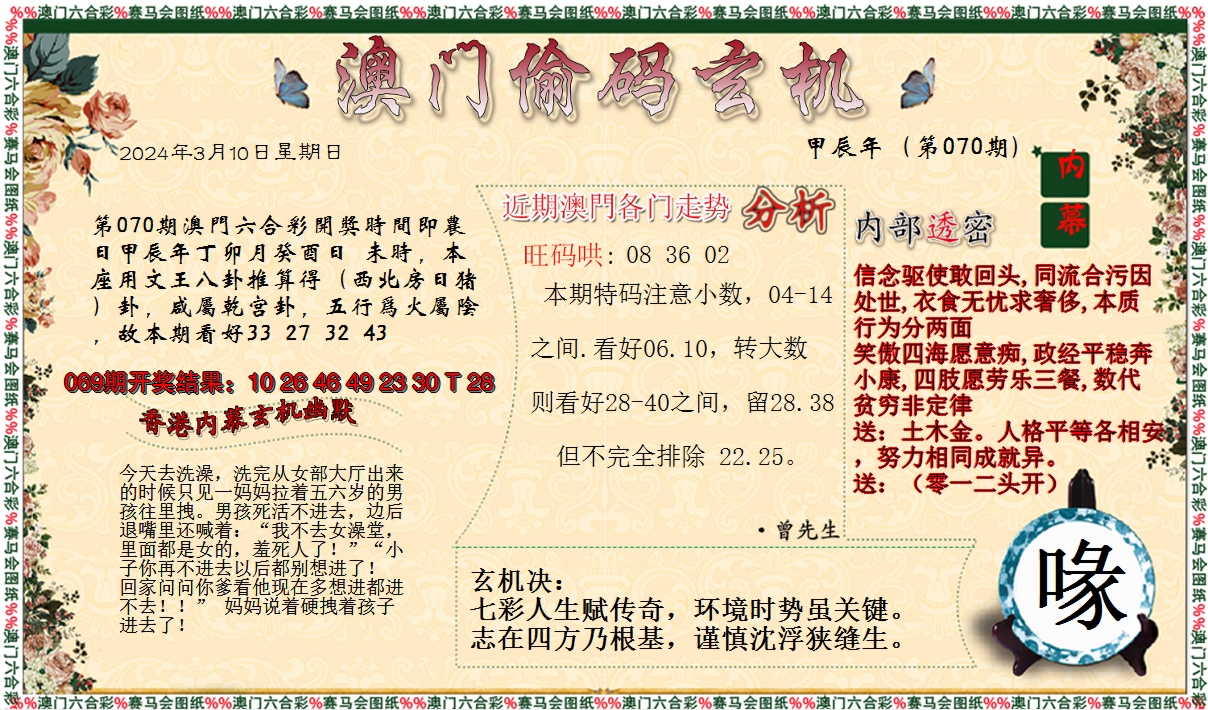 %%澳门六合彩%赛马会图纸%%澳门六合彩%赛马会图纸%%澳门六合彩%赛马会图纸%%澳门六合彩%赛马会图纸%%澳门六合彩%赛马会图纸%%澳门六合彩%赛马会图纸%%
澳门偷码玄机
2024年3月10日星期日
甲辰年（第070期）
内幕
第070期澳門六合彩開獎時間即農
日甲辰年丁卯月癸酉日 未時，本
座用文王八卦推算得（西北房日猪
）卦，咸屬乾宫卦，五行爲火屬陰
，故本期看好33 27 32 43
069期开奖结果：10 26 46 49 23 30 T 28
香港内幕玄机幽默
今天去洗澡，洗完从女部大厅出来
的时候只见一妈妈拉着五六岁的男
孩往里拽。男孩死活不进去，边后
退嘴里还喊着：“我不去女澡堂，
里面都是女的，羞死人了！”“小
子你再不进去以后都别想进了！
回家问问你爹看他现在多想进都进
不去！！” 妈妈说着硬拽着孩子
进去了！
近期澳門各门走势 分析
旺码哄：08 36 02
本期特码注意小数，04-14
之间.看好06.10，转大数
则看好28-40之间，留28.38
但不完全排除 22.25。
·曾先生
玄机决：
七彩人生赋传奇，环境时势虽关键。
志在四方乃根基，谨慎沈浮狭缝生。
内部透密
信念驱使敢回头,同流合污因
处世,衣食无忧求奢侈,本质
行为分两面
笑傲四海愿意痴,政经平稳奔
小康,四肢愿劳乐三餐,数代
贫穷非定律
送：土木金。人格平等各相安
，努力相同成就异。
送：（零一二头开）
喙
%%澳门六合彩%赛马会图纸%%澳门六合彩%赛马会图纸%%澳门六合彩%赛马会图纸%%澳门六合彩%赛马会图纸%%澳门六合彩%赛马会图纸%%澳门六合彩%赛马会图纸%%